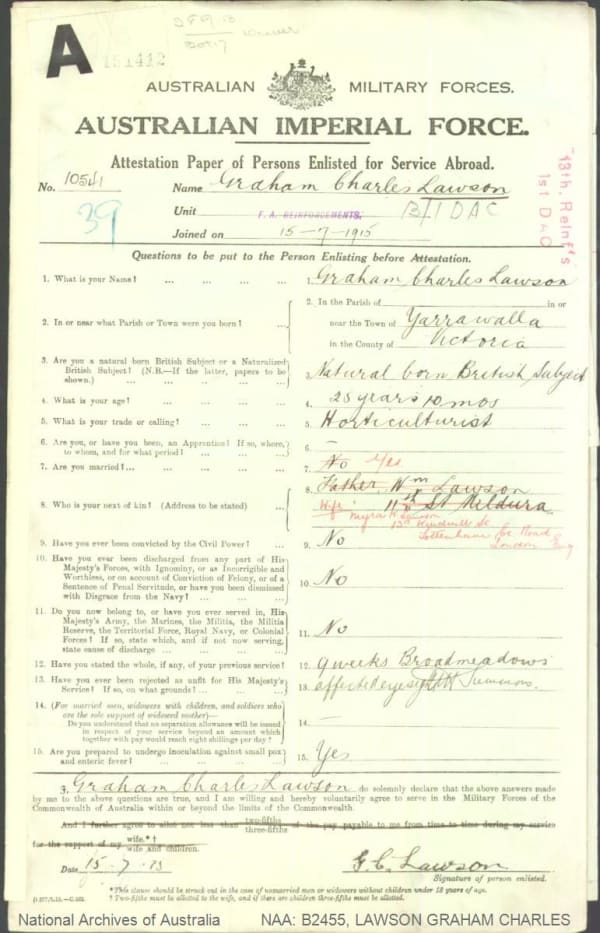 A
151412
AUSTRALIAN MILITARY FORCES.
AUSTRALIAN IMPERIAL FORCE.
Attestation Paper of Persons Enlisted for Service Abroad.
No. 10541 Name Graham Charles Lawson
39
Unit F. A. REINFORCEMENTS. 13/1 DAC
Joined on 15-7-1915
13th, Reinf's
1st DAC
Questions to be put to the Person Enlisting before Attestation.
1. What is your Name? ... ... ... ... 1. Graham Charles Lawson
2. In or near what Parish or Town were you born? ... 2. In the Parish of in or
near the Town of Yarrawalla
in the County of Victoria
3. Are you a natural born British Subject or a Naturalized
British Subject? (N.B.—If the latter, papers to be
shown.) ... ... ... ... ... 3. Natural born British Subject
4. What is your age? ... ... ... ... 4. 25 years 10 mos
5. What is your trade or calling? ... ... ... 5. Horticulturist
6. Are you, or have you been, an Apprentice? If so, where,
to whom, and for what period? ... ... ... 6. —
7. Are you married? ... ... ... ... 7. No Yes
8. Who is your next of kin? (Address to be stated) ... 8. Father, Wm Lawson
11th St Mildura
Wife
Lawson
Tottenham
London
9. Have you ever been convicted by the Civil Power? ... 9. No
10. Have you ever been discharged from any part of His
Majesty's Forces, with Ignominy, or as Incorrigible and
Worthless, or on account of Conviction of Felony, or of a
Sentence of Penal Servitude, or have you been dismissed
with Disgrace from the Navy? ... ... ... 10. No
11. Do you now belong to, or have you ever served in, His
Majesty's Army, the Marines, the Militia, the Militia
Reserve, the Territorial Force, Royal Navy, or Colonial
Forces? If so, state which, and if not now serving,
state cause of discharge ... ... ... ... 11. No
12. Have you stated the whole, if any, of your previous service? 12. 9 weeks Broadmeadows
13. Have you ever been rejected as unfit for His Majesty's
Service? If so, on what grounds? ... ... ... 13. affected eyesight
14. (For married men, widowers with children, and soldiers who
are the sole support of widowed mother)—
Do you understand that no separation allowance will be issued
in respect of your service beyond an amount which
together with pay would reach eight shillings per day? 14. —
15. Are you prepared to undergo inoculation against small pox
and enteric fever? ... ... ... ... 15. Yes
I, Graham Charles Lawson do solemnly declare that the above answers made
by me to the above questions are true, and I am willing and hereby voluntarily agree to serve in the Military Forces of the
Commonwealth of Australia within or beyond the limits of the Commonwealth.
And I further agree to allot not less than two-fifths three-fifths of the pay payable to me from time to time during my service
for the support of my wife.*† wife and children.
Date 15.7.15 G.C. Lawson
Signature of person enlisted.
*This clause should be struck out in the case of unmarried men or widowers without children under 18 years of age.
† Two-fifths must be allotted to the wife, and if there are children three-fifths must be allotted.
National Archives of Australia NAA: B2455, LAWSON GRAHAM CHARLES